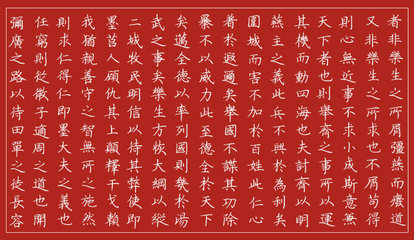 者非樂生之所屑彊燕而廢道
又非樂生之所求也不屑苟得
則心無近事不求小成斯意兼
天下者也則舉齊之事所以運
其機而動四海也夫討齊以明
燕主之義此兵不興於為利矣
圍城而害不加於百姓此仁心
著於遐邇矣舉國不謀其功除
暴不以威力此至德全於天下
矣邁全德以率列國則幾於湯
武之事矣樂生方恢大綱以縱
二城牧民明信以待其弊使即
墨莒人顧仇其上願釋干戈賴
我猶親善守之智無所之施然
則求仁得仁即墨大夫之義也
任窮則從微子適周之道也開
彌廣之路以待田單之徒長容